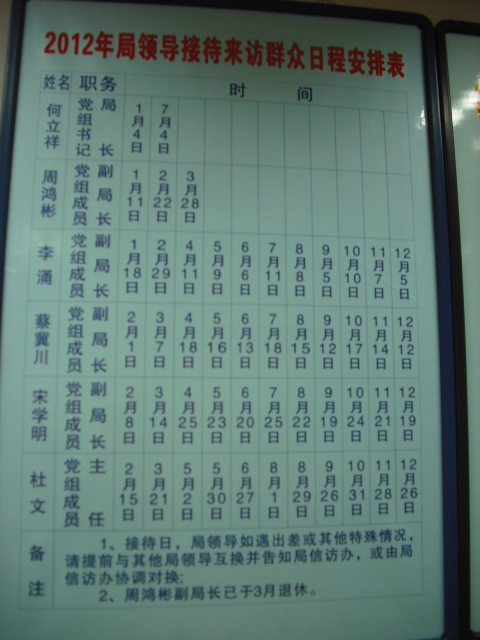 2012年局领导接待来访群众日程安排表
姓名 职务 时间
何立祥 党组书记 局长 1月4日 7月4日
周鸿彬 党组成员 副局长 1月11日 2月22日 3月28日
李涌 党组成员 副局长 1月18日 2月29日 4月11日 5月9日 6月6日 7月11日 8月8日 9月5日 10月10日 11月7日 12月5日
蔡冀川 党组成员 副局长 2月1日 3月7日 4月18日 5月16日 6月13日 7月18日 8月15日 9月12日 10月17日 11月14日 12月12日
宋学明 党组成员 副局长 2月8日 3月14日 4月25日 5月23日 6月20日 7月25日 8月22日 9月19日 10月24日 11月21日 12月19日
杜文 党组成员 主任 2月15日 3月21日 5月2日 5月30日 6月27日 8月1日 8月29日 9月26日 10月31日 11月28日 12月26日
备注 1、接待日，局领导如遇出差或其他特殊情况，
请提前与其他局领导互换并告知局信访办，或由局
信访办协调对换;
2、周鸿彬副局长已于3月退休。